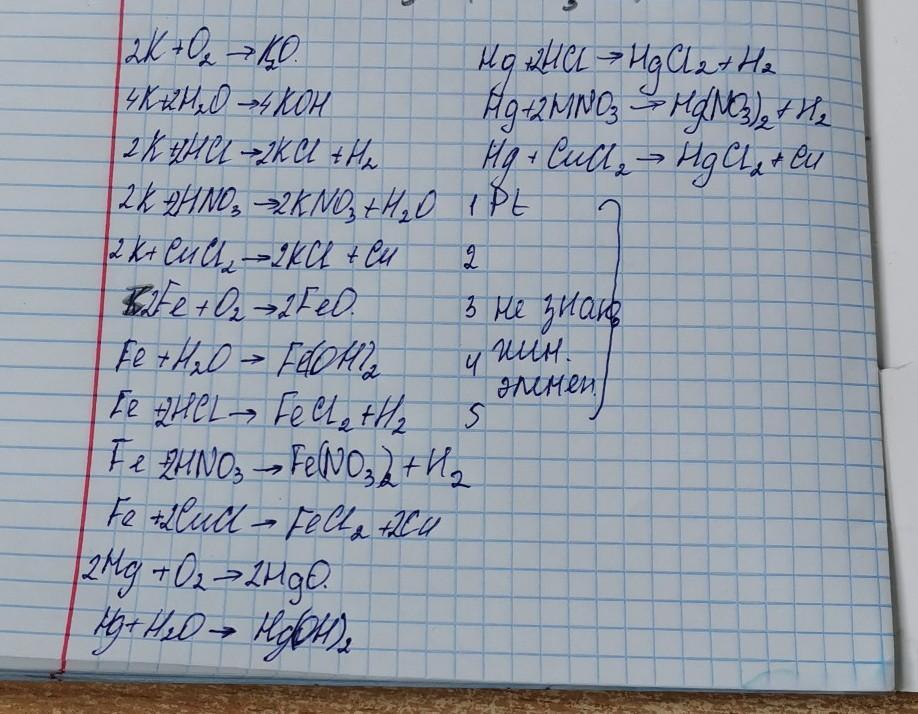 2K + O₂ → K₂O.
4K+2H₂O → 4KOH
2K+2HCl → 2KCl + H₂
2K+2HNO₃ → 2KNO₃ + H₂O
2K + CuCl₂ → 2KCl + Cu
2Fe + O₂ → 2FeO.
Fe + H₂O → Fe(OH)₂
Fe + 2HCl → FeCl₂ + H₂
Fe + 2HNO₃ → Fe(NO₃)₂ + H₂
Fe + 2CuCl → FeCl₂ + 2Cu
2Hg + O₂ → 2HgO.
Hg + H₂O → Hg(OH)₂
Hg + 2HCl → HgCl₂ + H₂
Hg + 2HNO₃ → Hg(NO₃)₂ + H₂
Hg + CuCl₂ → HgCl₂ + Cu
1 Pt
2
3 не знаю
4 хим.
5